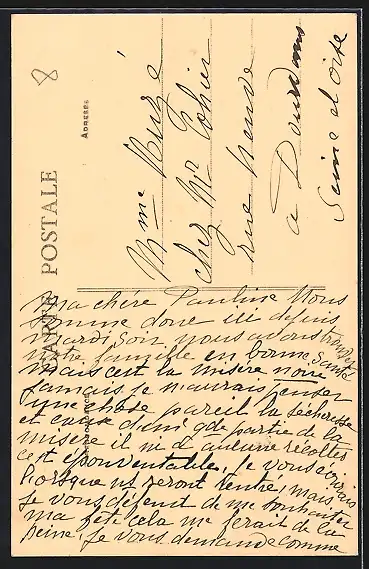 CARTE POSTALE
ADRESSE
Mme Ruzé
chez Mr Tohier
rue neuve
a Dourdans
Seine et Oise
Ma chére Pauline Nous
somme donc ici depuis
mardi soir nous avons trouver
notre famille en bonne santé
mais cest la misère noire
jamais je naurais penser
une chose pareil la sécheresse
et cause dune gde partie de la
misère il ni a aucune récolter
cest épouventable. Je vous écrirais
lorsque ns seront rentré, mais
Je vous défend de me souhaiter
ma fête cela me ferait de la
peine. Je vous demande comme